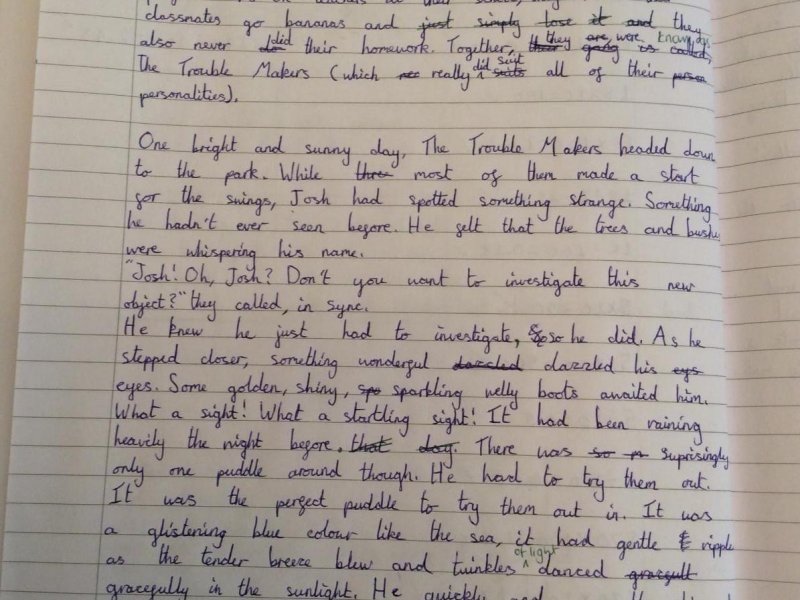 classmates go bananas and just simply lose it and they
also never do did their homework. Together, their they are, were gang is known as called,
The Trouble Makers (which really did suit suits all of their
personalities).
One bright and sunny day, The Trouble Makers headed down
to the park. While three most of them made a start
for the swings, Josh had spotted something strange. Something
he hadn't ever seen before. He felt that the trees and bushes
were whispering his name.
"Josh! Oh, Josh? Don't you want to investigate this new
object?" they called, in sync.
He knew he just had to investigate, so he did. As he
stepped closer, something wonderful dazzled dazzled his eys
eyes. Some golden, shiny, spa sparkling welly boots awaited him.
What a sight! What a startling sight! It had been raining
heavily the night before. that day. There was so m suprisingly
only one puddle around though. He had to try them out.
It was the perfect puddle to try them out in. It was
a glistening blue colour like the sea, it had gentle ripple
as the tender breeze blew and twinkles of light danced gracefull
gracefully in the sunlight. He quickly